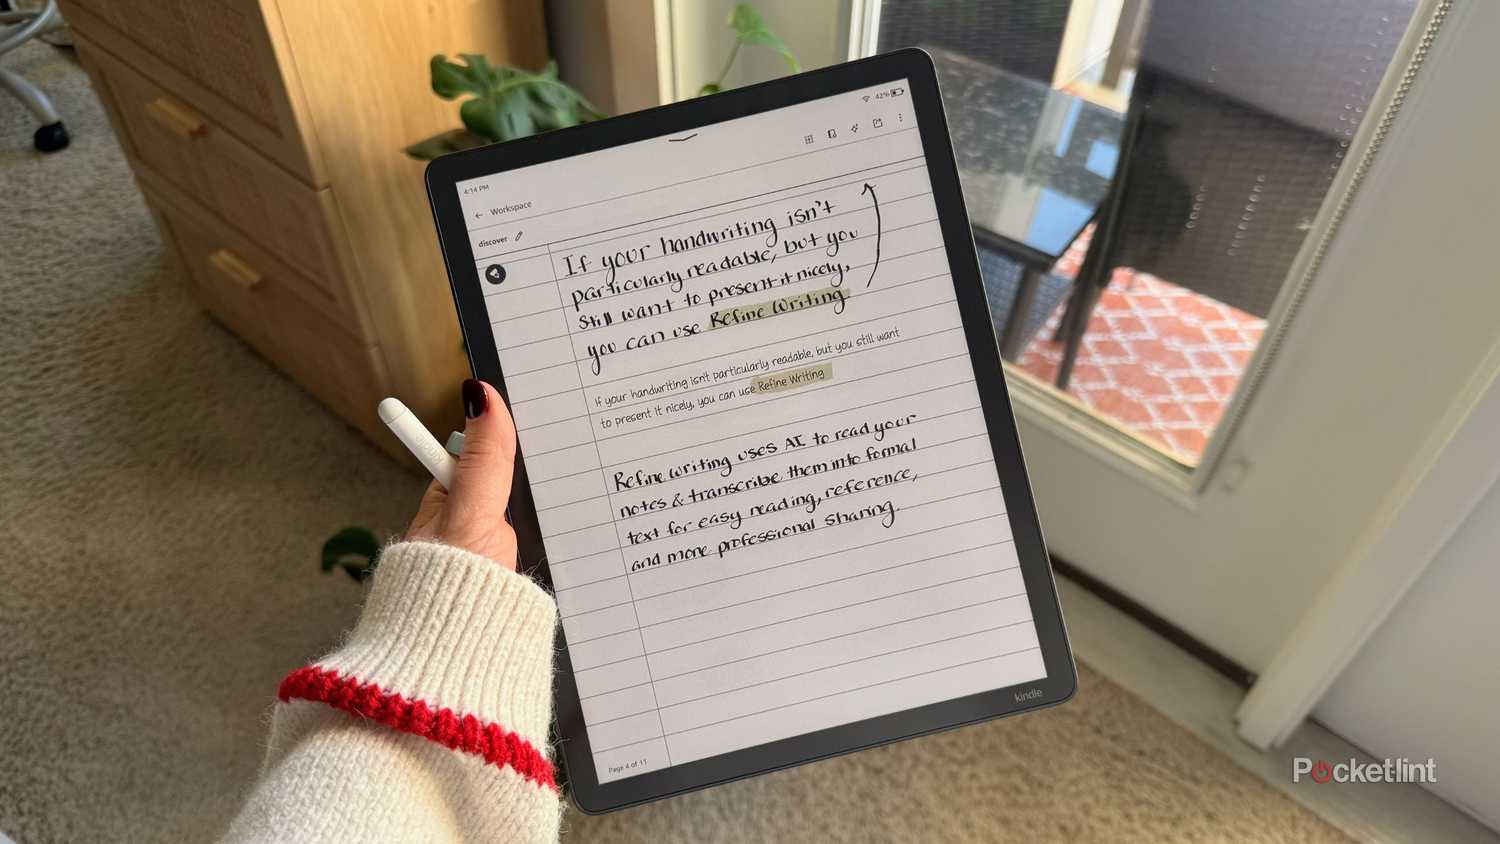 4:14 PM
42%
← Workspace
discover
If your handwriting isn't
particularly readable, but you
still want to present it nicely,
you can use Refine Writing
If your handwriting isn't particularly readable, but you still want
to present it nicely, you can use Refine Writing
Refine writing uses AI to read your
notes & transcribe them into formal
text for easy reading, reference,
and more professional sharing.
Page 4 of 11
kindle
Pocketlint